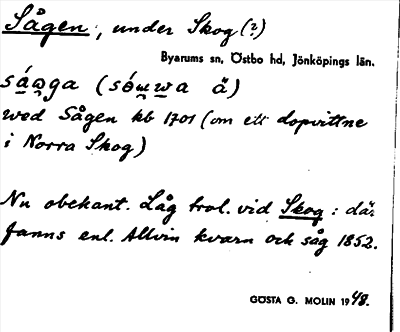 Sågen, under Skog (?)
Byarums sn, Östbo hd, Jönköpings län.
ved Sågen kb 1701 (om ett dopvittne
i Norra Skog)
Nu obekant. Låg trol. vid Skog: där
fanns enl. Allvin kvarn och såg 1852.
GÖSTA G. MOLIN 1948.